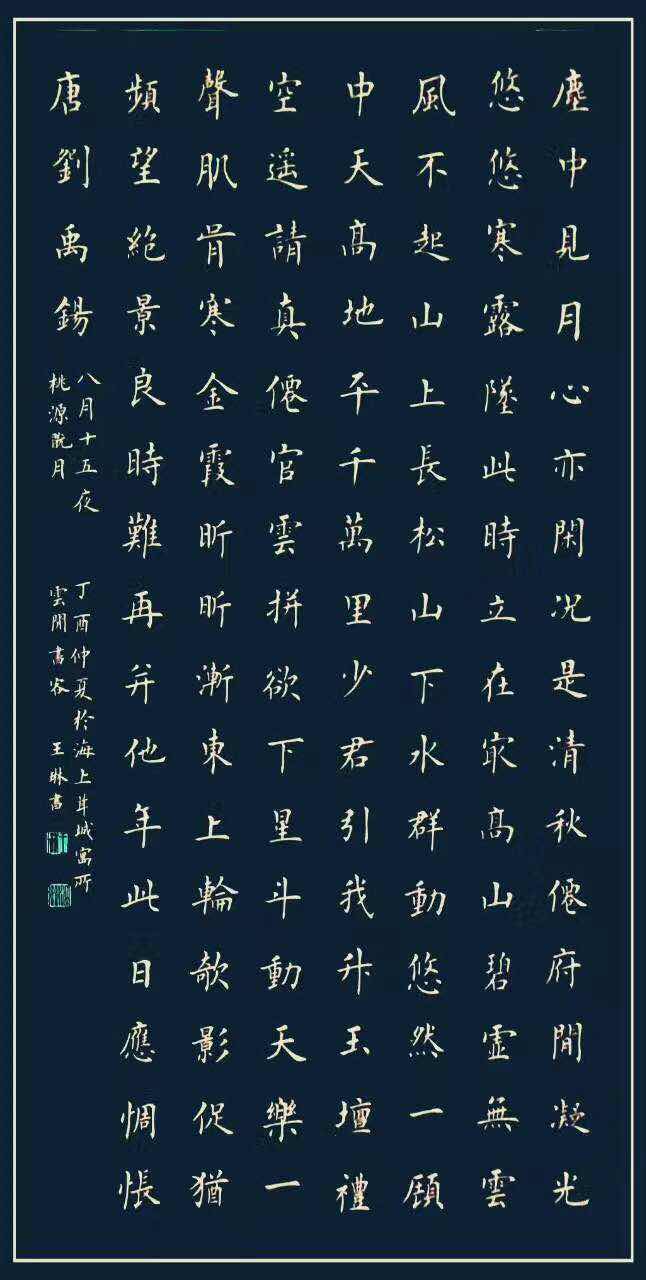 塵中見月心亦閑况是清秋僊府間凝光
悠悠寒露墜此時立在㝡高山碧虛無雲
風不起山上長松山下水群動悠然一顧
中天高地平千萬里少君引我升玉壇禮
空遥請真僊官雲拼欲下星斗動天樂一
聲肌骨寒金霞昕昕漸東上輪欹影促猶
頻望絶景良時難再并他年此日應惆悵
唐劉禹錫
八月十五夜
桃源翫月
丁酉仲夏於海上
城寓所
雲間書客 王琳書